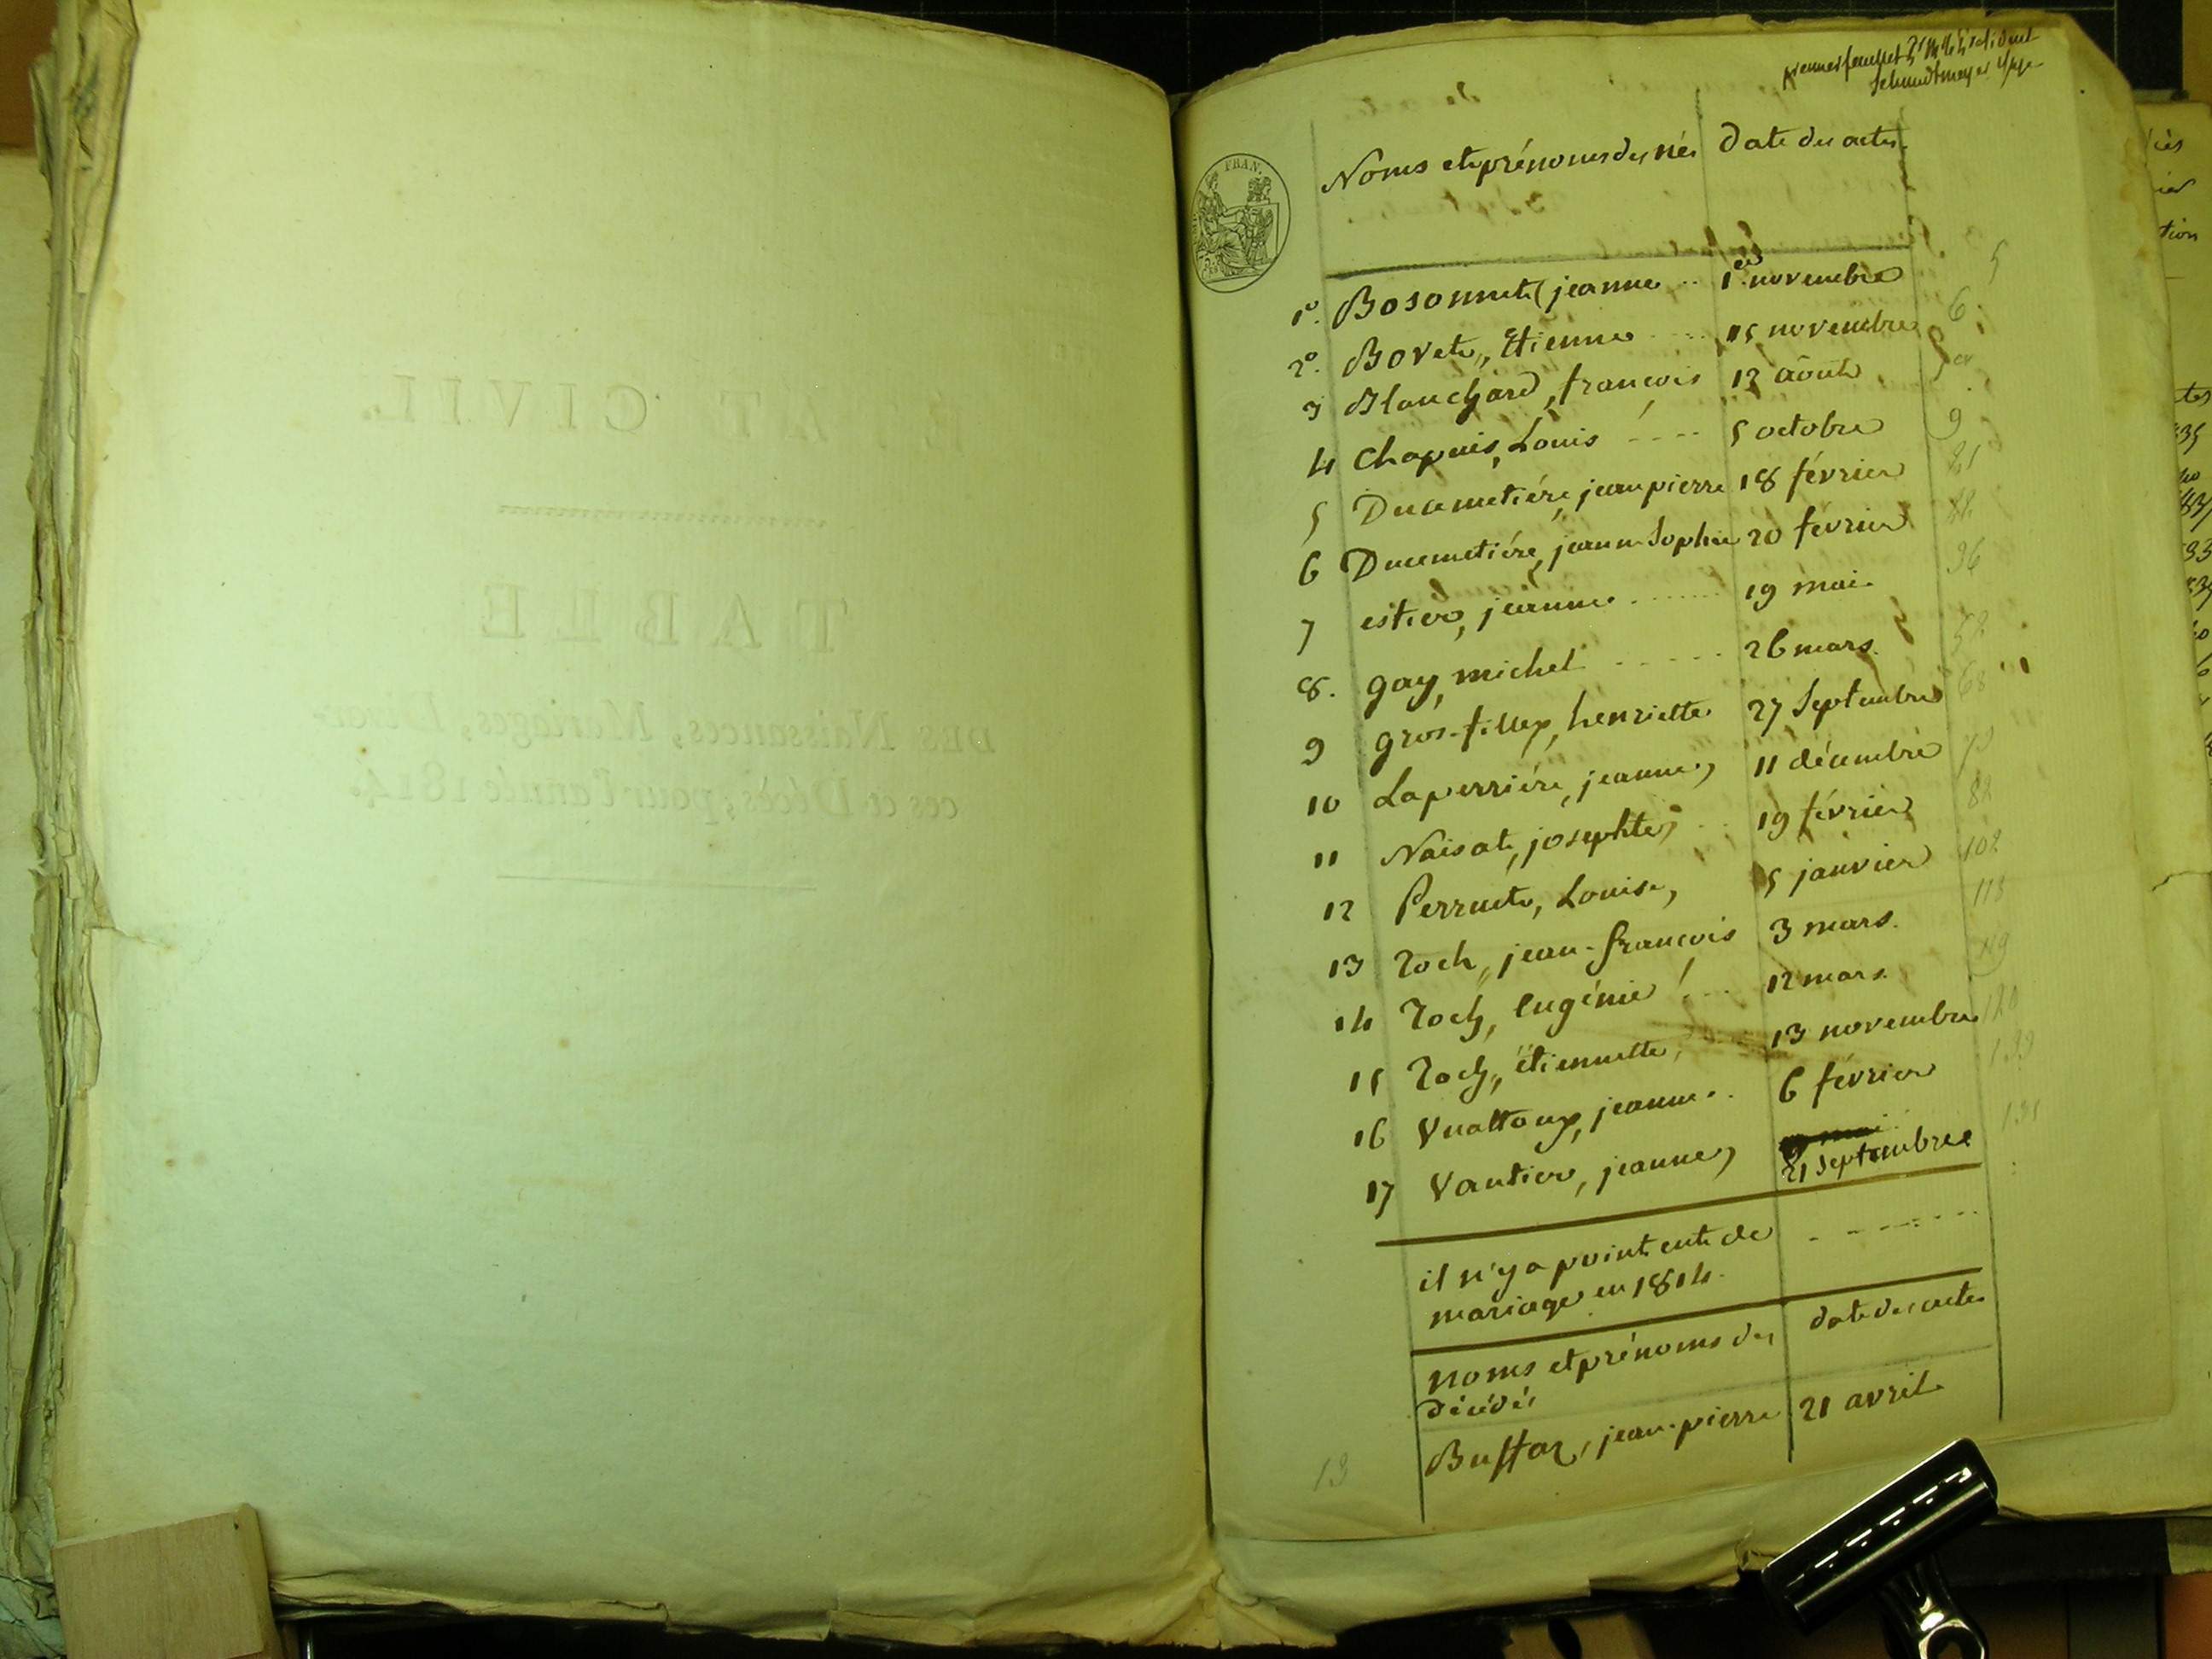 ÉTAT CIVIL.
TABLE
DES Naissances, Mariages, Divor-
ces et Décès, pour l'année 1814.
premier feuillet
Schmidtmeyer
FRAN.
Noms et prénoms des nés date des actes
1o. Bosonnet (jeanne .. 1er. novembre 5
2o. Bovet, Etienne .... 15 novembre 6
3 Blanchard, françois 12 août
4 Chapuis, Louis .... 5 octobre 9
5 Ducimetière, jean pierre 18 février 21
6 Ducimetière, jeanne Sophie 20 février 22
7 estier, jeanne ....... 19 mai 36
8. gay, michel ...... 26 mars. 52
9 gros-fillex, henriette 27 Septembre 68
10 Laperrière, jeanne, 11 décembre 79
11 Naisat, josephte, .. 19 février 88
12 Perruet, Louise, 5 janvier 102
13 Roch, jean-françois 3 mars. 113
14 Roch, Eugénie ... 12 mars. 119
15 Roch, étiennette, 13 novembre 120
16 Vuattoux, jeanne. 6 février 133
17 Vautier, jeanne, 21 septembre 131
il n'y a point eut de
mariage en 1814.
noms et prénoms des date des actes
décédés
13 Buffaz, jean-pierre 21 avril